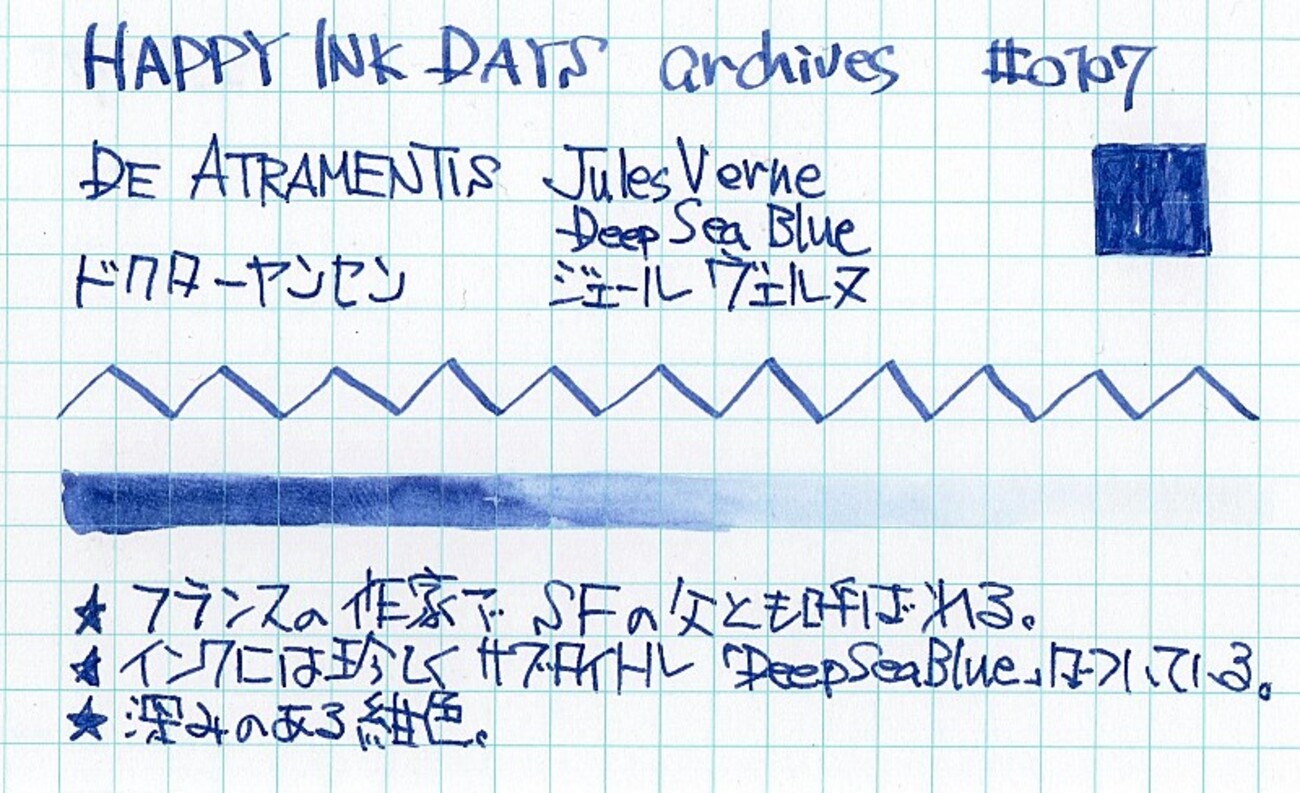 HAPPY INK DAYS archives #0707
DE ATRAMENTIS Jules Verne
Deep Sea Blue
ドクターヤンセン ジュール ヴェルヌ
★ フランスの作家で SFの父とも呼ばれる。
★ インクには珍しく サブタイトル「DeepSeaBlue」がついている。
★ 深みのある紺色。